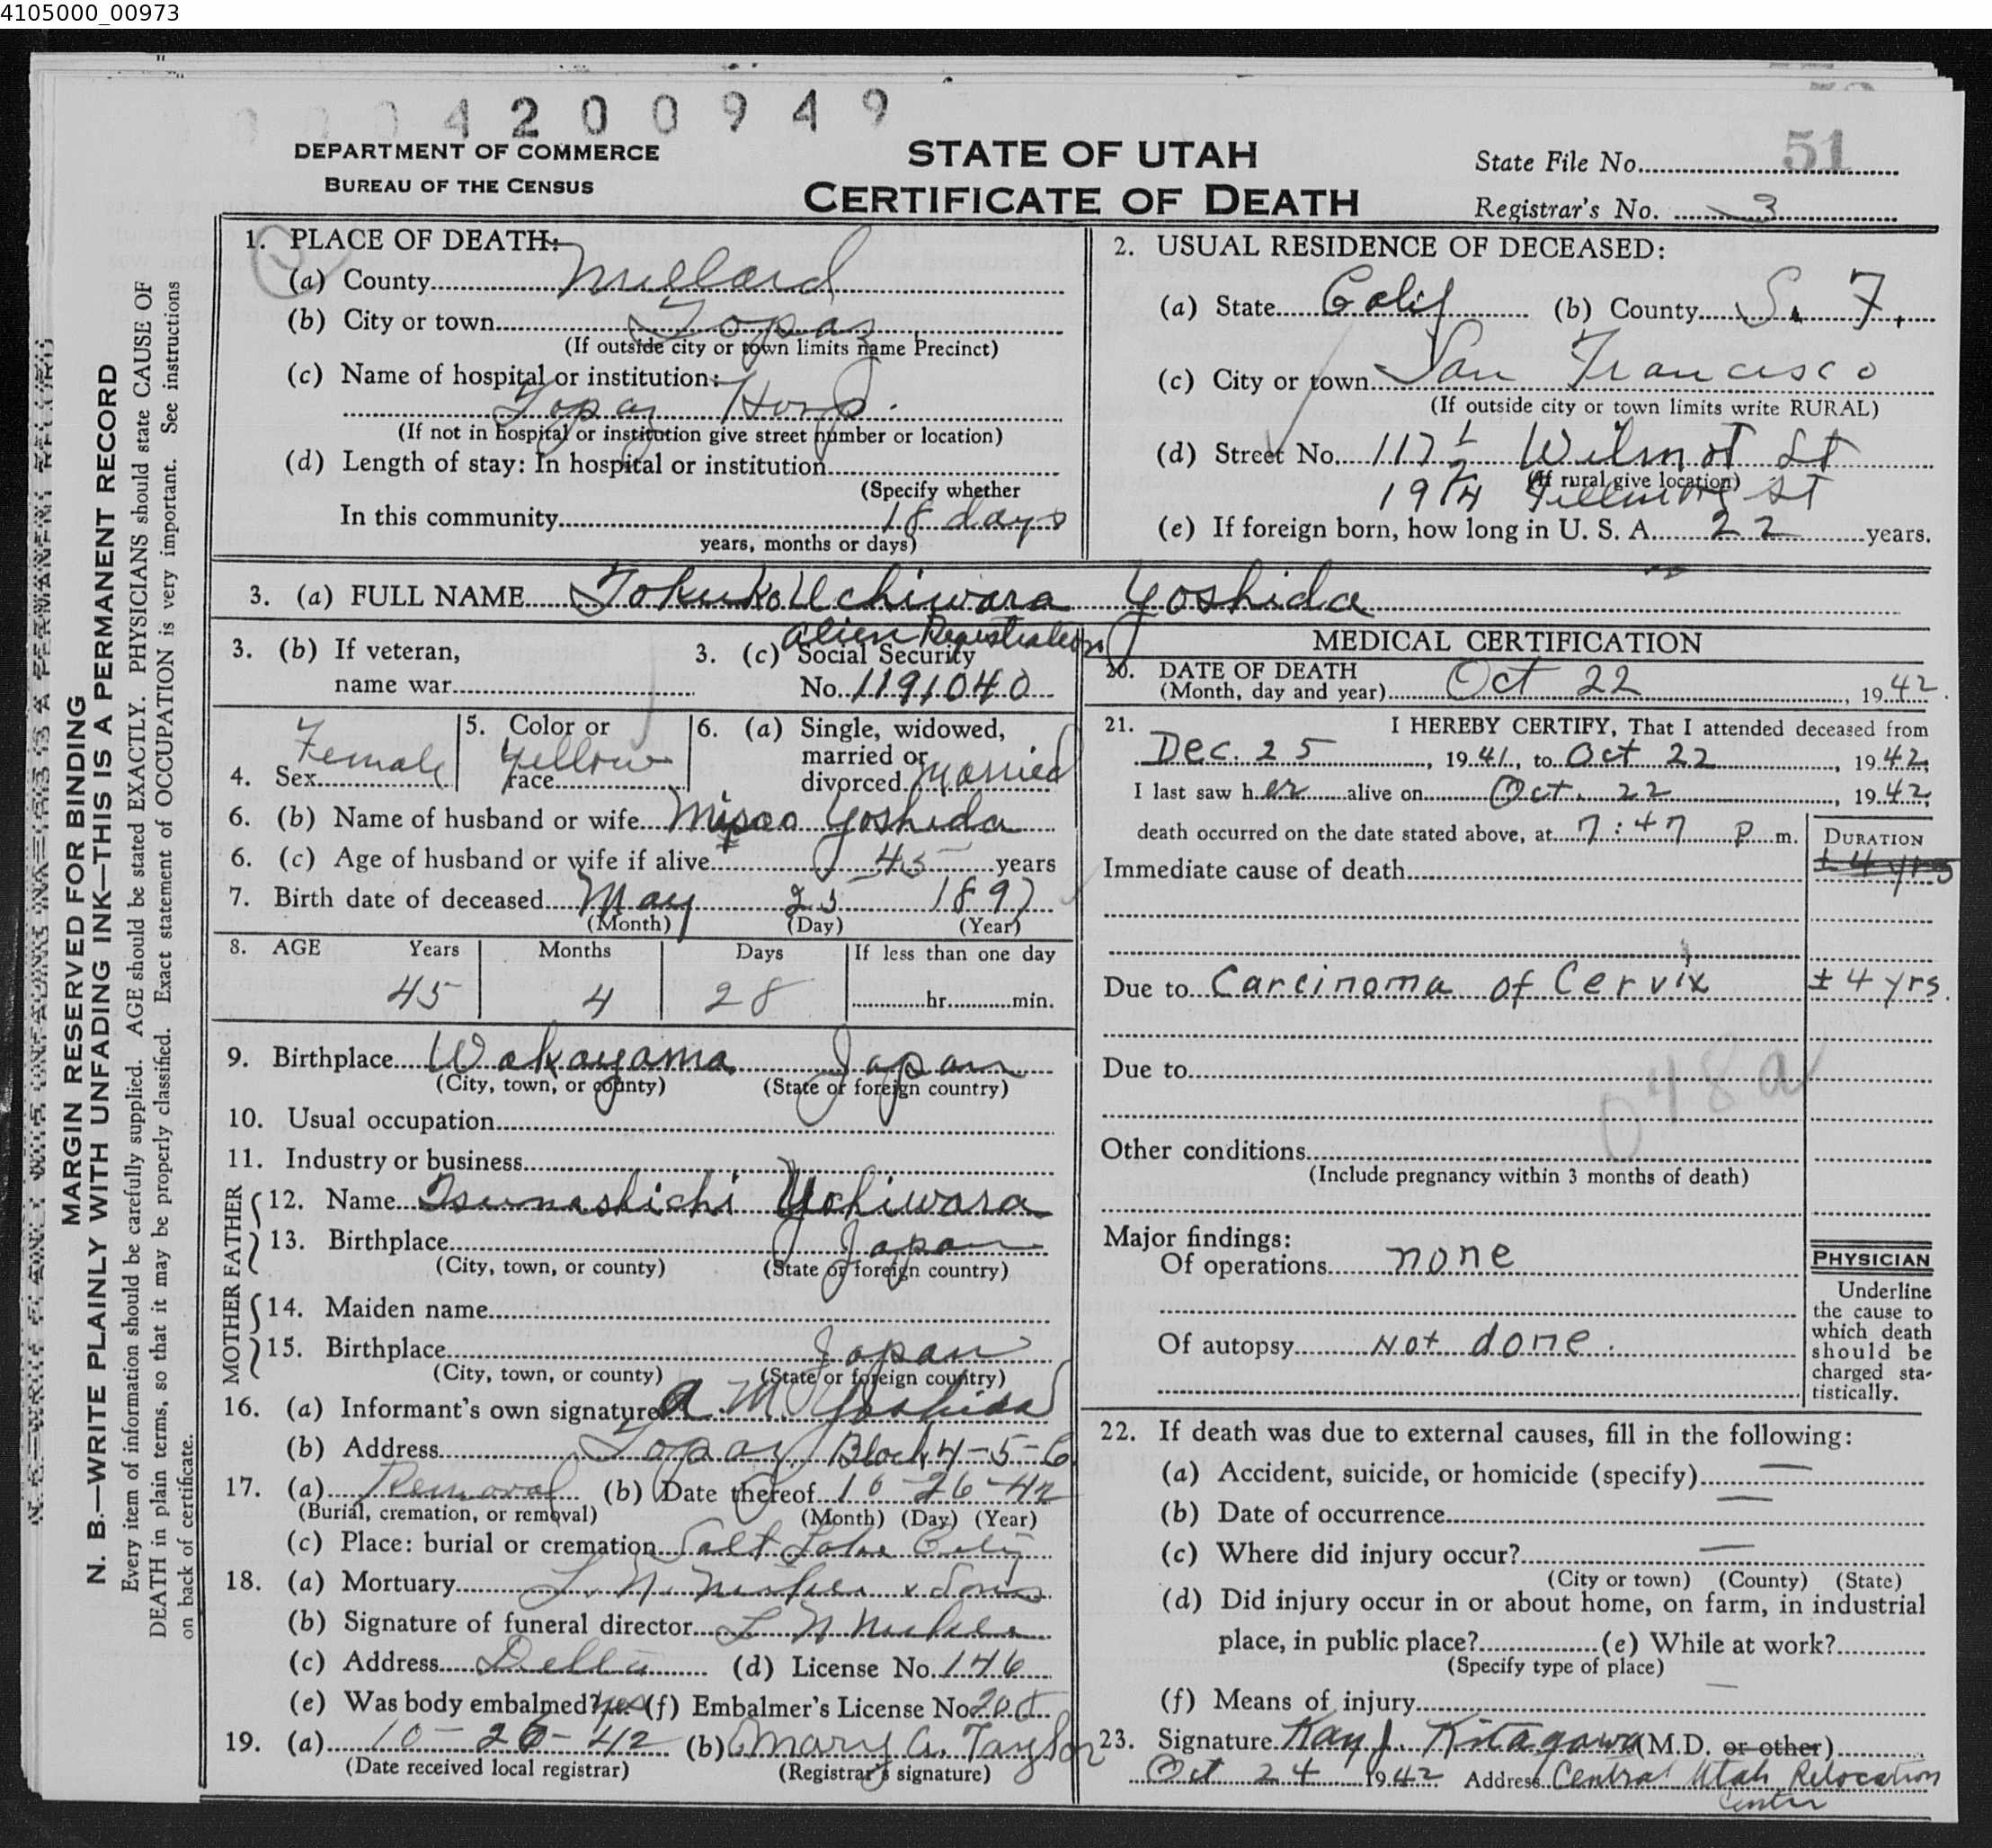 4105000_00973
4 2 0 0 9 4 9
DEPARTMENT OF COMMERCE
BUREAU OF THE CENSUS
STATE OF UTAH
CERTIFICATE OF DEATH
State File No. 51
Registrar's No. 3
MARGIN RESERVED FOR BINDING
N. B.—WRITE PLAINLY WITH UNFADING INK—THIS IS A PERMANENT RECORD
Every item of information should be carefully supplied. AGE should be stated EXACTLY. PHYSICIANS should state CAUSE OF
DEATH in plain terms, so that it may be properly classified. Exact statement of OCCUPATION is very important. See instructions
on back of certificate.
1. PLACE OF DEATH:
(a) County Millard
(b) City or town Topaz
(If outside city or town limits name Precinct)
(c) Name of hospital or institution:
Topaz Hosp.
(If not in hospital or institution give street number or location)
(d) Length of stay: In hospital or institution
(Specify whether
In this community 18 days
years, months or days)
2. USUAL RESIDENCE OF DECEASED:
(a) State Calif (b) County S. F.
(c) City or town San Francisco
(If outside city or town limits write RURAL)
(d) Street No. 117 1/2 Wilmot St
(If rural give location)
19 Fillmore St
(e) If foreign born, how long in U. S. A. 22 years.
3. (a) FULL NAME Tokuko Uchiwara Yoshida
3. (b) If veteran,
name war
Alien Registration
3. (c) Social Security
No. 1191040
4. Sex Female
5. Color or
race Yellow
6. (a) Single, widowed,
married or
divorced Married
6. (b) Name of husband or wife Misao Yoshida
6. (c) Age of husband or wife if alive 45 years
7. Birth date of deceased May 25 1897
(Month) (Day) (Year)
8. AGE Years Months Days If less than one day
45 4 28 hr. min.
9. Birthplace Wakayama Japan
(City, town, or county) (State or foreign country)
10. Usual occupation
11. Industry or business
FATHER
12. Name Tsunashichi Uchiwara
13. Birthplace Japan
(City, town, or county) (State or foreign country)
MOTHER
14. Maiden name
15. Birthplace Japan
(City, town, or county) (State or foreign country)
16. (a) Informant's own signature A. M. Yoshida
(b) Address Topaz Block 4-5-6
17. (a) Removal (b) Date thereof 10-26-42
(Burial, cremation, or removal) (Month) (Day) (Year)
(c) Place: burial or cremation Salt Lake City
18. (a) Mortuary L. N. & Sons
(b) Signature of funeral director L N
(c) Address Delta (d) License No. 146
(e) Was body embalmed? yes (f) Embalmer's License No.
19. (a) 10-26-42 (b) Mary A. Taylor
(Date received local registrar) (Registrar's signature)
MEDICAL CERTIFICATION
20. DATE OF DEATH
(Month, day and year) Oct 22, 1942.
21. I HEREBY CERTIFY, That I attended deceased from
Dec. 25, 1941, to Oct 22, 1942,
I last saw her alive on Oct. 22, 1942,
death occurred on the date stated above, at 7:47 P.m.
DURATION
Immediate cause of death ± 4 yrs
Due to Carcinoma of Cervix ± 4 yrs.
Due to
048a
Other conditions
(Include pregnancy within 3 months of death)
Major findings:
Of operations none
Of autopsy Not done.
PHYSICIAN
Underline
the cause to
which death
should be
charged sta-
tistically.
22. If death was due to external causes, fill in the following:
(a) Accident, suicide, or homicide (specify) —
(b) Date of occurrence —
(c) Where did injury occur? —
(City or town) (County) (State)
(d) Did injury occur in or about home, on farm, in industrial
place, in public place? (e) While at work?
(Specify type of place)
(f) Means of injury —
23. Signature Kay J. Kitagawa (M.D. or other)
Oct 24 1942 Address Central Utah Relocation
Center